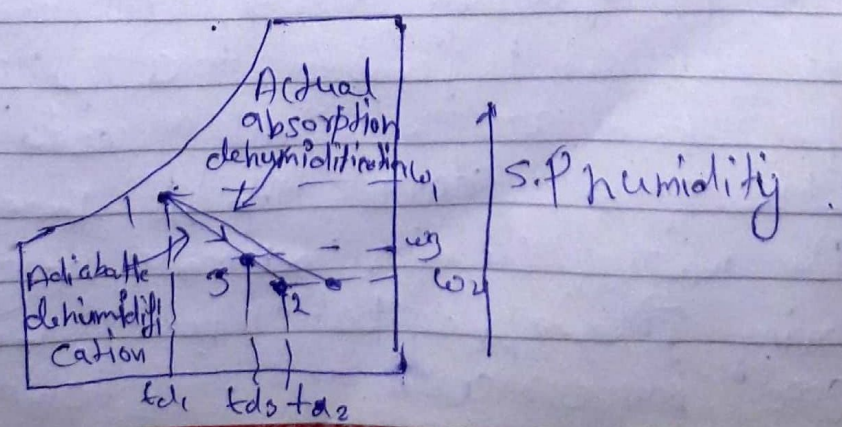 Actual
absorption
dehumidification
ω1
S.P humidity
1
ω3
Adiabatte
dehumidifi
cation
3
2
ω2
td1 td3 td2